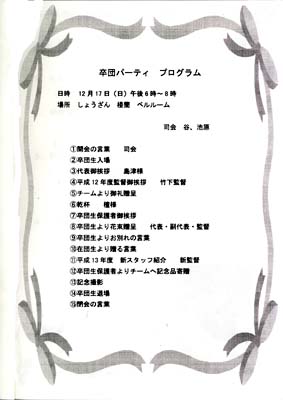 卒団パーティ　プログラム
日時　12月17日（日）午後6時～8時
場所　しょうざん　楼蘭　ベルルーム
司会　谷、池原
①開会の言葉　司会
②卒団生入場
③代表御挨拶　島津様
④平成12年度監督御挨拶　竹下監督
⑤チームより御礼贈呈
⑥乾杯　様
⑦卒団生保護者御挨拶
⑧卒団生より花束贈呈　代表・副代表・監督
⑨卒団生よりお別れの言葉
⑩在団生より贈る言葉
⑪平成13年度　新スタッフ紹介　新監督
⑫卒団生保護者よりチームへ記念品寄贈
⑬記念撮影
⑭卒団生退場
⑮閉会の言葉